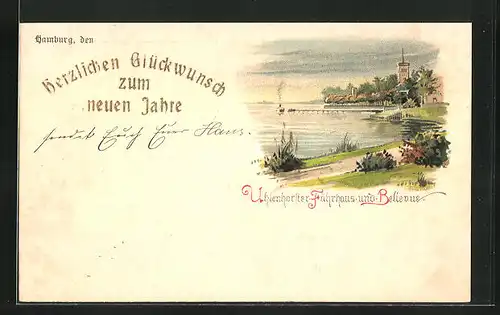 Hamburg, den
Herzlichen Glückwunsch
zum
neuen Jahre
sendet Euch Euer Hans.
Uhlenhorster-Fährhaus-und-Bellevue